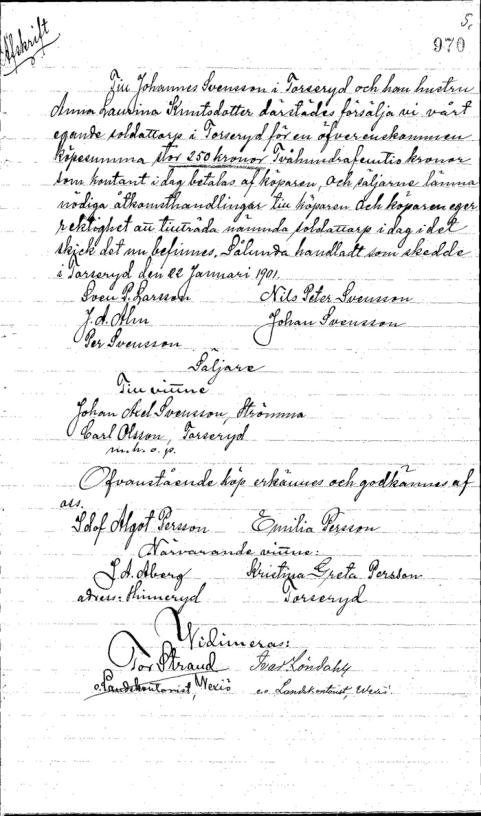 5.
970
Afskrift
Till Johannes Svensson i Torseryd och han hustru
Anna Laurina Knutsdotter därstädes försälja vi vårt
egande soldattorp i Torseryd för en öfverenskommen
köpesumma stor 250 kronor Tvåhundrafemtio kronor
som kontant i dag betalas af köparen, och säljarne lämna
nödiga åtkomsthandlingar till köparen och köparen eger
rektighet att tillträda nämnda soldattorp i dag i det
skick det nu befinnes. Sålunda handladt som skedde
i Torseryd den 22 Januari 1901.
Sven P. Larsson Nils Peter Svensson
J. A. Alm Johan Svensson
Per Svensson
Säljare
Till vittne
Johan Axel Svensson, Strömma
Carl Olsson, Torseryd
m. h. o. p.
Ofvanstående köp erkännes och godkännes af
oss.
Idof Algot Persson Emilia Persson
Närvarande vittne:
J. A. Åberg Kristina Greta Persson
adress: Hinneryd Torseryd
Widimeras:
Tor Strand Ivar Löndahl
e. o. Landskontorist, Wexiö e. o. Landskontorist, Wexiö.